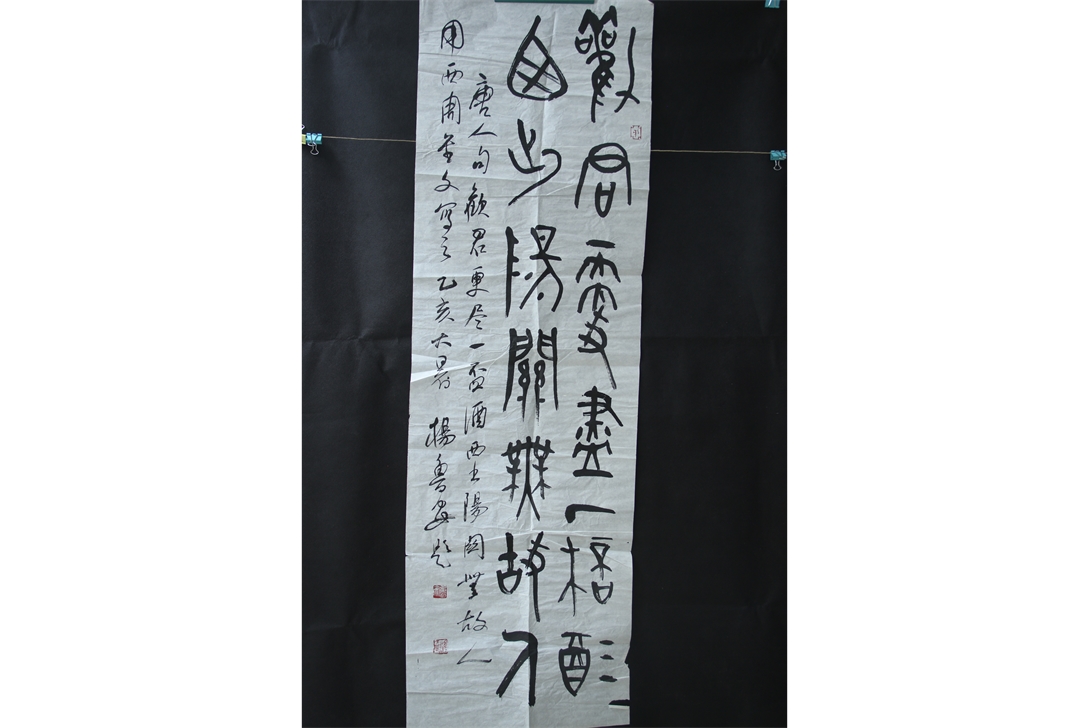 歡君更盡一桮酒
西出陽關無故人
唐人句歡君更尽一盃酒西出陽関無故人
用西周金文寫之乙亥大暑 楊魯安題